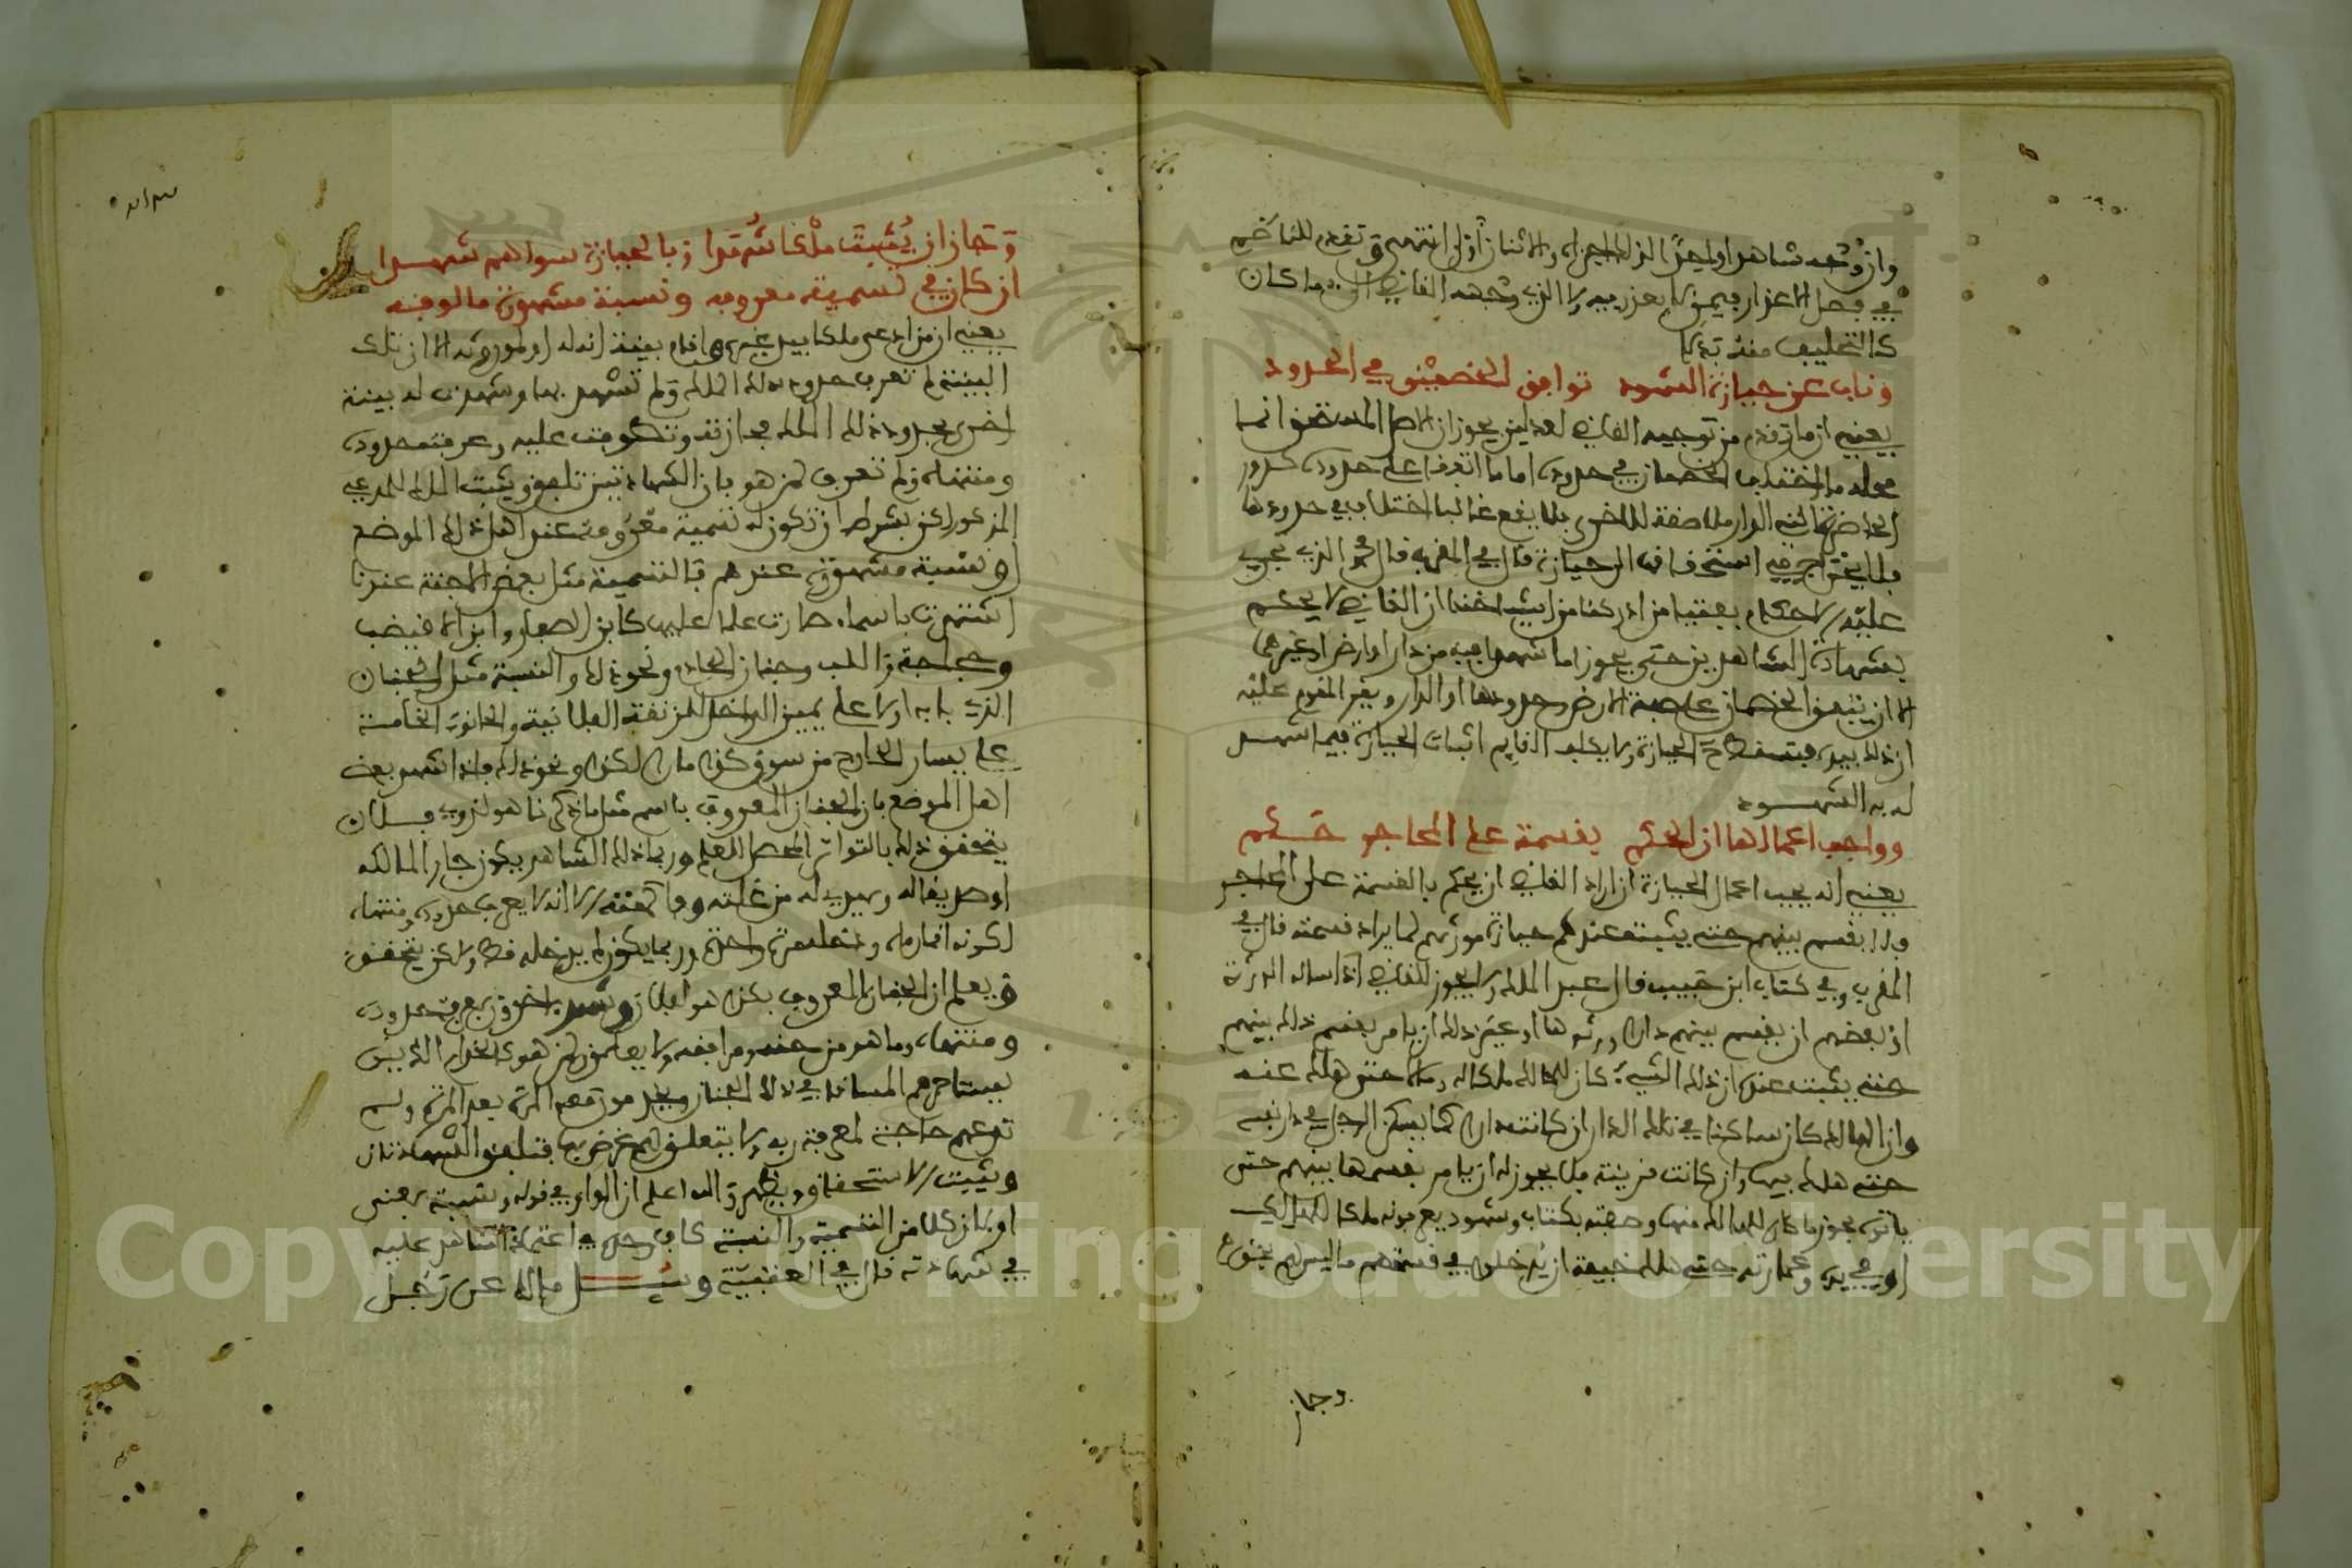 وان وجه شاهدا واحدا لذلك اجزاه والاثنان اولى انتهى وتقدم للناظم
في فصل الاعذار فيمن لا يعذر فيه ولا الذي وجهه القاضي الى ما كان
كالتحليف منه بدلا
وناب عن حيازة الشهود توافق الخصمين في الحدود
يعني ان ما تقدم من توجيه القاضي لعدلين يحوزان الاصل المستحق انما
محله ما اختلف الخصمان في حدوده اما ما اتفقا على حدوده كدور
الحاضرة التي الدار ملاصقة للاخرى فلا يقع غالبا اختلاف في حدودها
فلا يحتاج فيه استحقاقه الى حيازة قال في المقرب قال محمد الذي جرى
عليه الاحكام بفتيا من ادركنا من اشياخنا ان القاضي لا يحكم
بشهادة الشاهدين حتى يحوزا ما شهدا فيه من دار او ارض او غيرها
الا ان يتفق الخصمان على صفة الارض وحدودها او الدار ويقر المقوم عليه
ان ذلك بيده فتسقط الحيازة ولا يكلف القايم اثبات الحيازة فيما شهد
له به الشهود
وواجب اعمالها ان الحكم بقسمة على المحاجر حكم
يعني انه يجب اعمال الحيازة ان اراد القاضي ان يحكم بالقسمة على المحاجر
فلا يقسم بينهم حتى يثبت عندهم حيازة موثهم لما يراد قسمته قال في
المقرب وفي كتاب ابن حبيب قال عبد الملك ولا يجوز للقاضي اذا ساله الورثة
او بعضهم ان يقسم بينهم دارا ورثوها او غير ذلك ان يامر بقسم ذلك بينهم
حتى يثبت عنده ان ذلك الشيء كان للهالك ملكا له ومالا حتى هلك عنه
وان الهالك كان ساكنا في تلك الدار ان كانت دارا كما يسكن الرجل في دار نفسه
حتى هلك فيها وان كانت قرية فلا يجوز له ان يامر بقسمها بينهم حتى
ياتوه بحوز ما كان للهالك منها وصفته بكتاب وشهود يعرفونه ملكا للهالك
او في يده وعمارته حتى هلك خيفة ان يدخلوا في قسمتهم ما ليس لهم بحق
وجاز
وجاز ان يثبت ملكا شهدا وبالحيازة سواهم شهدا
ان كان في تسمية معروفه ونسبة مشهورة مالوفه
يعني ان من ادعى ملكا بيد غيره واقام بينة انه له او لموروثه الا ان تلك
البينة لم تعرف حدود ذلك الملك ولم تشهد بها وشهدت له بينة
اخرى بحدود ذلك الملك فحازته وتطوفت عليه وعرفت حدوده
ومنتهاه ولم تعرف لمن هو فان الشهادتين تلفق ويثبت الملك للمدعي
المذكور لكن بشرط ان تكون له تسمية معروفة عند اهل ذلك الموضع
او نسبة مشهورة عندهم فالتسمية مثل بعض الاجنة عندنا
اشتهرت باسماء صارت علما عليها كابن الصغار وابن الاقيضب
وحجاجة والطب وجنان الجاد ونحو ذلك والنسبة مثل الجنان
الذي بابه اولا على يمين الداخل للزنقة الفلانية والحانوت الخامسة
على يسار الخارج من سوق كذا مارا لكذا ونحو ذلك فاذا شهد بعض
اهل الموضع بان الجنان المعروف باسم مثل ما ذكرنا هو لزيد بن فلان
يتحقق ذلك بالتواتر المحصل للعلم وربما ذلك الشاهد يكون جار المالكه
او صديقا له ويهدي له من غلته وفاكهته الا انه لا يعرف حدوده ومنتهاه
لكونه انما رءاه ودخله مرة واحدة وربما يكون لم يدخله قط ولكن يتحقق
ويعلم ان الجنان المعروف بكذا هو لفلان وشهد اخرون بمعرفة حدوده
ومنتهاه وما هو من حقوقه ومرافقه ولا يعلمون لمن هو كالخدام الذين
يستاجرهم المساقي في ذلك الجنان ويدخلونه معه المرة بعد المرة وليس
تدعهم حاجة لمعرفة ربه ولا يتعلق لهم غرض بها فتلفق الشهادتان
ويثبت الاستحقاق ويظهر والله اعلم ان الواو في قوله ونسبة بمعنى
او فان كلا من التسمية والنسبة كاف وحده في اعتماد الشاهد عليه
في شهادته قال في العتبية وسيل مالك عن رجل